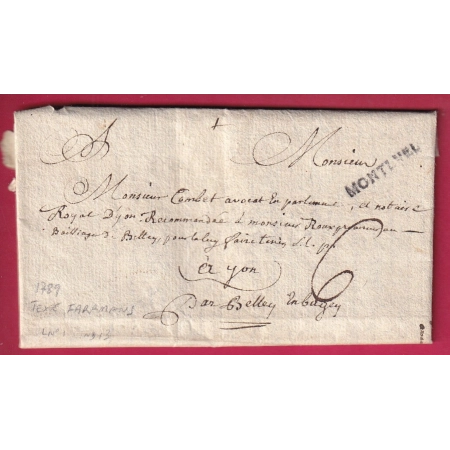 A
Monsieur
MONTLUEL
Monsieur Combet avocat En parlement, et notaire
Royal Dyon Recommandée à monsieur
Bailliage de Belley, pour luy faire tenir S. l. p.
6
à yon
Par Belley En bugey
1789
TEXE FARAMANS